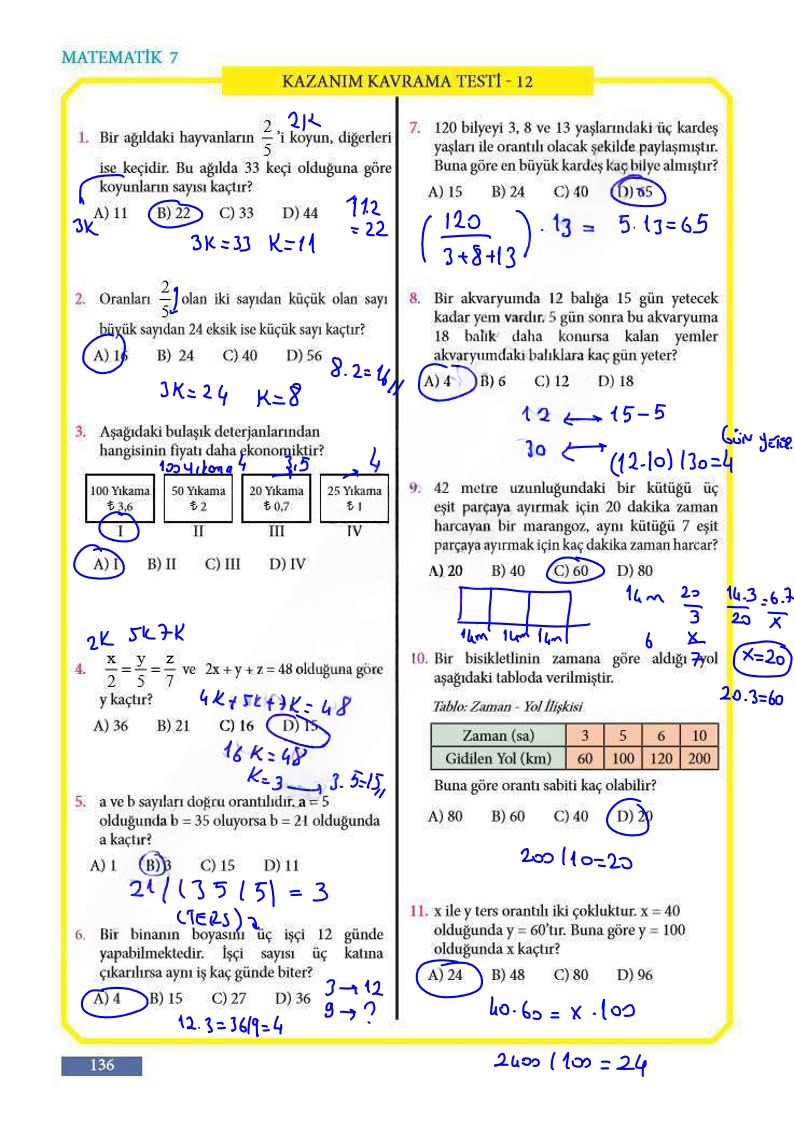 MATEMATİK 7
KAZANIM KAVRAMA TESTİ - 12
2K
1. Bir ağıldaki hayvanların 2/5 'i koyun, diğerleri
ise keçidir. Bu ağılda 33 keçi olduğuna göre
koyunların sayısı kaçtır?
3K
A) 11 B) 22 C) 33 D) 44
11.2
= 22
3K=33 K=11
2. Oranları 2/5 olan iki sayıdan küçük olan sayı
büyük sayıdan 24 eksik ise küçük sayı kaçtır?
A) 16 B) 24 C) 40 D) 56
8.2=16
3K=24 K=8
3. Aşağıdaki bulaşık deterjanlarından
hangisinin fiyatı daha ekonomiktir?
100 yıkama 4 3,5 4
100 Yıkama 50 Yıkama 20 Yıkama 25 Yıkama
₺ 3,6 ₺ 2 ₺ 0,7 ₺ 1
I II III IV
A) I B) II C) III D) IV
2K 5K 7K
4. x/2 = y/5 = z/7 ve 2x + y + z = 48 olduğuna göre
y kaçtır?
4K+5K+7K=48
A) 36 B) 21 C) 16 D) 15
16K=48
K=3 → 3.5=15
5. a ve b sayıları doğru orantılıdır. a = 5
olduğunda b = 35 oluyorsa b = 21 olduğunda
a kaçtır?
A) 1 B) 3 C) 15 D) 11
21/(35/5) = 3
(TERS)
6. Bir binanın boyasını üç işçi 12 günde
yapabilmektedir. İşçi sayısı üç katına
çıkarılırsa aynı iş kaç günde biter?
A) 4 B) 15 C) 27 D) 36
3→12
9→?
12.3=36/9=4
136
7. 120 bilyeyi 3, 8 ve 13 yaşlarındaki üç kardeş
yaşları ile orantılı olacak şekilde paylaşmıştır.
Buna göre en büyük kardeş kaç bilye almıştır?
A) 15 B) 24 C) 40 D) 65
(120/3+8+13) . 13 = 5.13=65
8. Bir akvaryumda 12 balığa 15 gün yetecek
kadar yem vardır. 5 gün sonra bu akvaryuma
18 balık daha konursa kalan yemler
akvaryumdaki balıklara kaç gün yeter?
A) 4 B) 6 C) 12 D) 18
12 ↔ 15-5
30 ↔ (12.10)/30=4
GÜN YETER
9. 42 metre uzunluğundaki bir kütüğü üç
eşit parçaya ayırmak için 20 dakika zaman
harcayan bir marangoz, aynı kütüğü 7 eşit
parçaya ayırmak için kaç dakika zaman harcar?
A) 20 B) 40 C) 60 D) 80
14m 14m 14m
14m 20/3 14.3/20 = 6.7/x
6 x/7
x=20
20.3=60
10. Bir bisikletlinin zamana göre aldığı yol
aşağıdaki tabloda verilmiştir.
Tablo: Zaman - Yol İlişkisi
Zaman (sa) 3 5 6 10
Gidilen Yol (km) 60 100 120 200
Buna göre orantı sabiti kaç olabilir?
A) 80 B) 60 C) 40 D) 20
200/10=20
11. x ile y ters orantılı iki çokluktur. x = 40
olduğunda y = 60'tır. Buna göre y = 100
olduğunda x kaçtır?
A) 24 B) 48 C) 80 D) 96
40.60 = x.100
2400/100 = 24